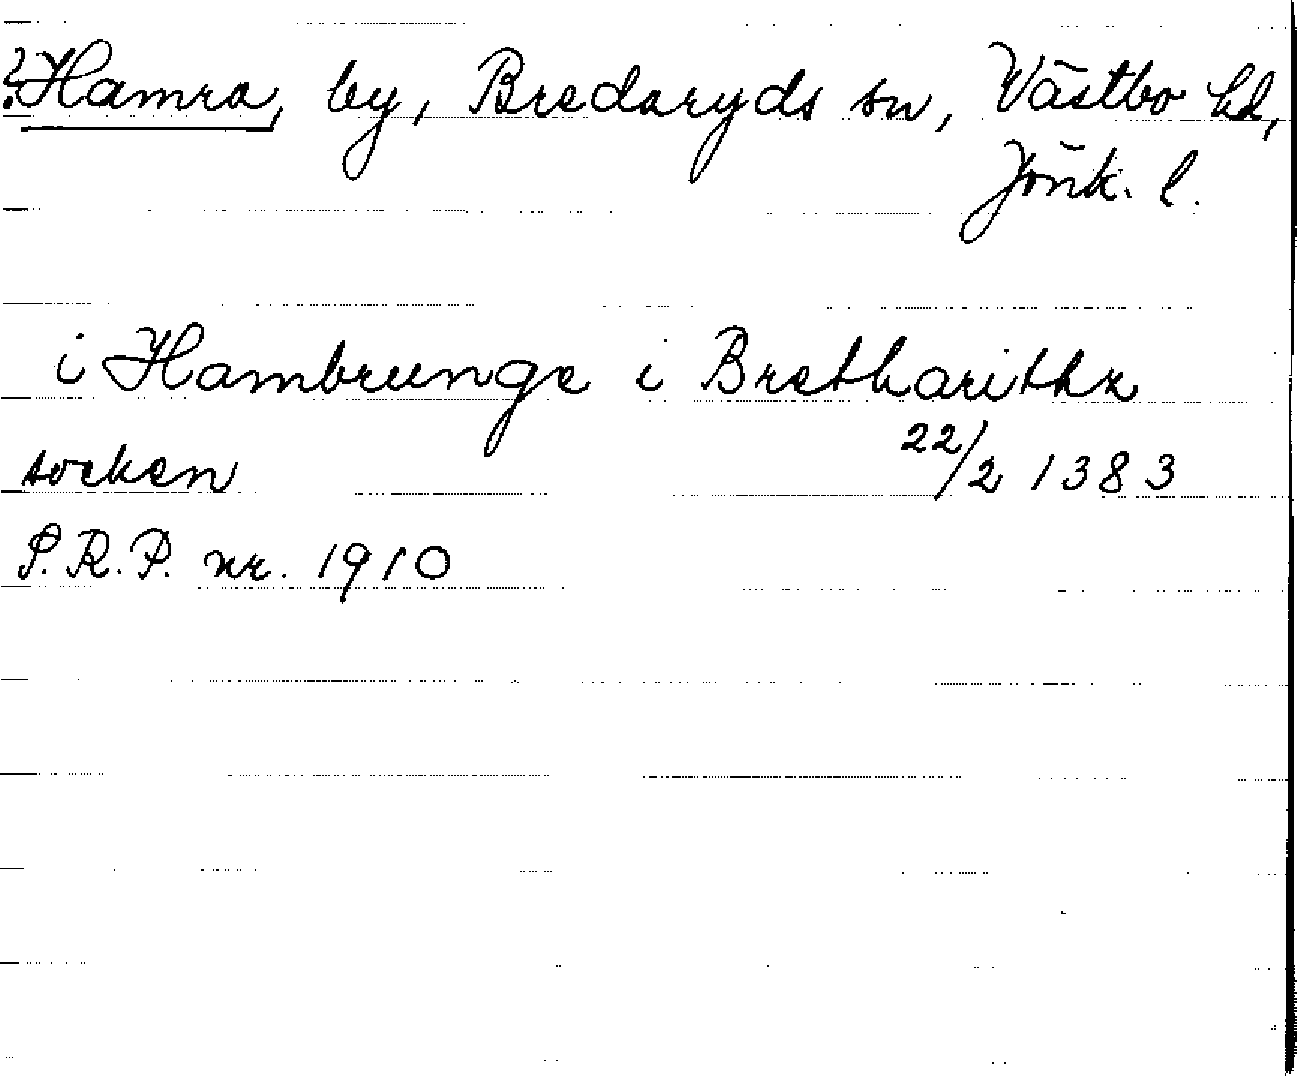 ?Hamra, by, Bredaryds sn, Västbo hd,
Jönk. l.
i Hambrunge i Bretharithz
socken 22/2 1383
S.R.P. nr. 1910